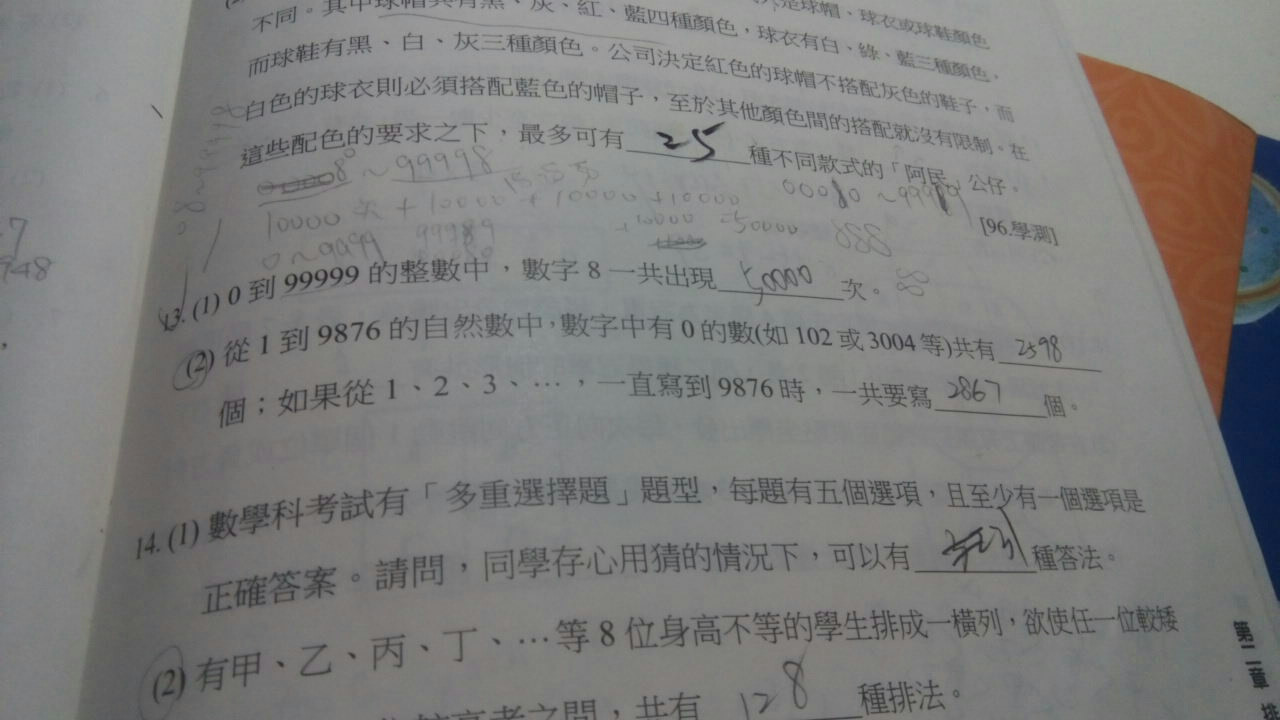 不同。其中球帽共有黑、灰、紅、藍四種顏色,球衣有白、綠、藍三種顏色,
而球鞋有黑、白、灰三種顏色。公司決定紅色的球帽不搭配灰色的鞋子,而
白色的球衣則必須搭配藍色的帽子,至於其他顏色間的搭配就沒有限制。在
這些配色的要求之下,最多可有 25 種不同款式的「阿民」公仔。
8 ~ 99998
10000 次 + 10000 + 10000 + 10000
+10000 =50000
0~9999
[96.學測]
13. (1) 0 到 99999 的整數中,數字 8 一共出現 50000 次。
(2) 從 1 到 9876 的自然數中,數字中有 0 的數(如 102 或 3004 等)共有 2598
個;如果從 1、2、3、…,一直寫到 9876 時,一共要寫 2867 個。
14. (1) 數學科考試有「多重選擇題」題型,每題有五個選項,且至少有一個選項是
正確答案。請問,同學存心用猜的情況下,可以有 31 種答法。
(2) 有甲、乙、丙、丁、…等 8 位身高不等的學生排成一橫列,欲使任一位較矮
較高者之間,共有 128 種排法。
第二章 排